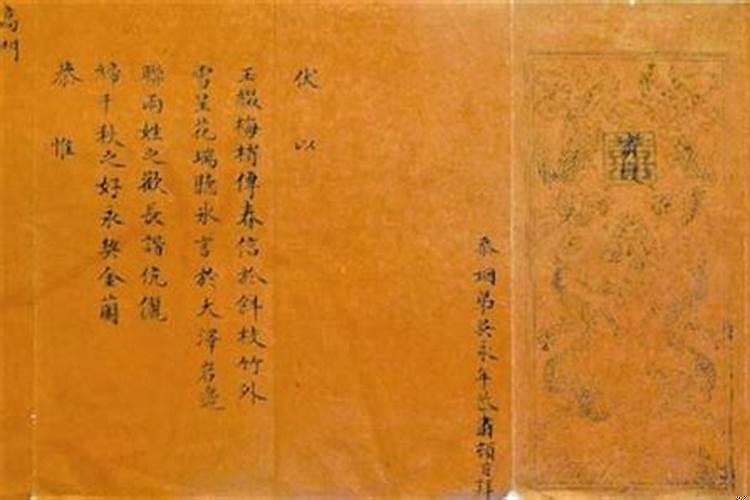 忝姻弟吳永年
頓首拜
伏以
玉綴梅梢傳春信於斜枝竹外
雪呈花瑞聽冰言於大澤岩邊
聯兩姓之歡長諧伉儷
締千秋之好永契金蘭
恭惟
高門